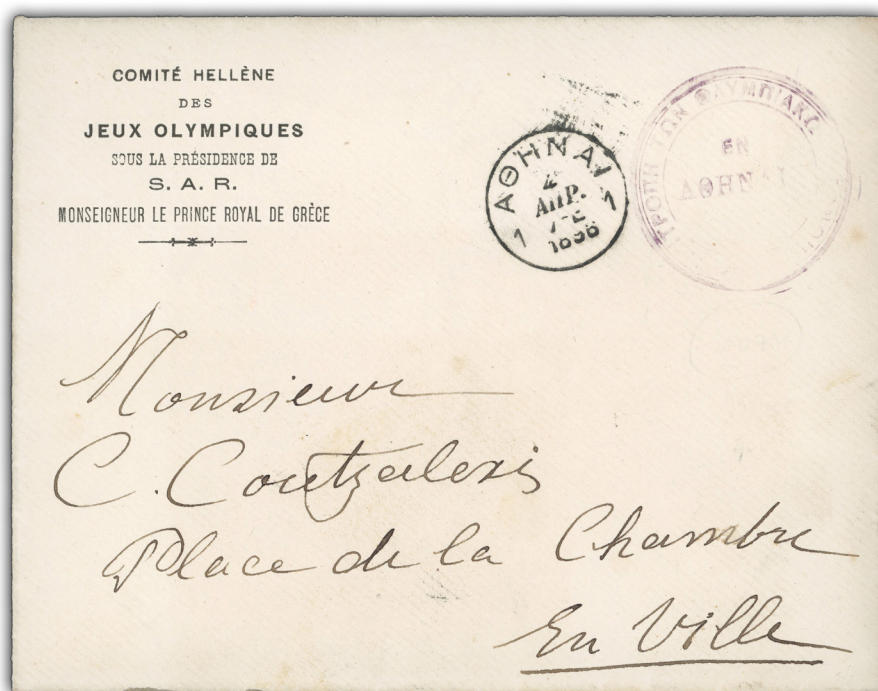 COMITÉ HELLÈNE
DES
JEUX OLYMPIQUES
SOUS LA PRÉSIDENCE DE
S. A. R.
MONSEIGNEUR LE PRINCE ROYAL DE GRÈCE
ΑΘΗΝΑΙ
ΑΠΡ.
1896
1 1
ΤΩΝ
ΕΝ
ΑΘΗΝΑΙ
Monsieur
C. Coutzalexis
Place de la Chambre
En Ville